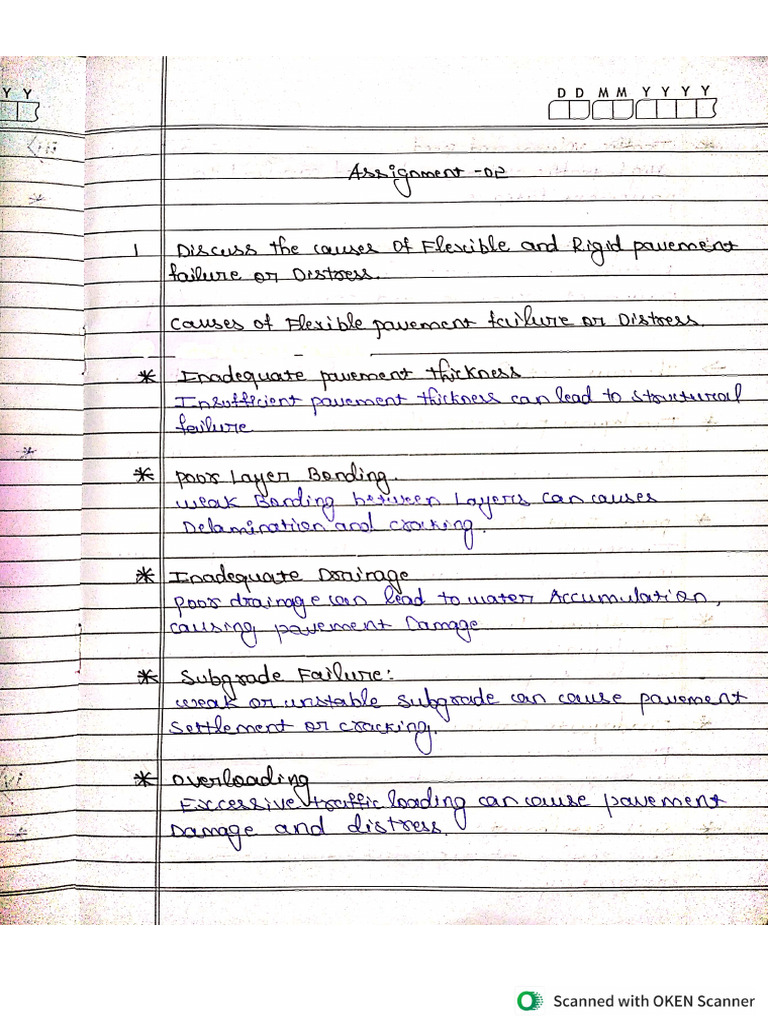 Y Y
D D M M Y Y Y Y
Assignment - 02
1 Discuss the causes of Flexible and Rigid pavement
failure or Distress.
causes of Flexible pavement failure or Distress.
* Inadequate pavement thickness
Insufficient pavement thickness can lead to structural
failure.
* poor Layer Bonding.
weak Bonding between Layers can causes
Delamination and cracking.
* Inadequate Drainage
poor drainage can lead to water Accumulation,
causing pavement Damage
* Subgrade Failure:
weak or unstable subgrade can cause pavement
settlement or cracking.
* overloading
Excessive traffic loading can cause pavement
Damage and distress.
Scanned with OKEN Scanner